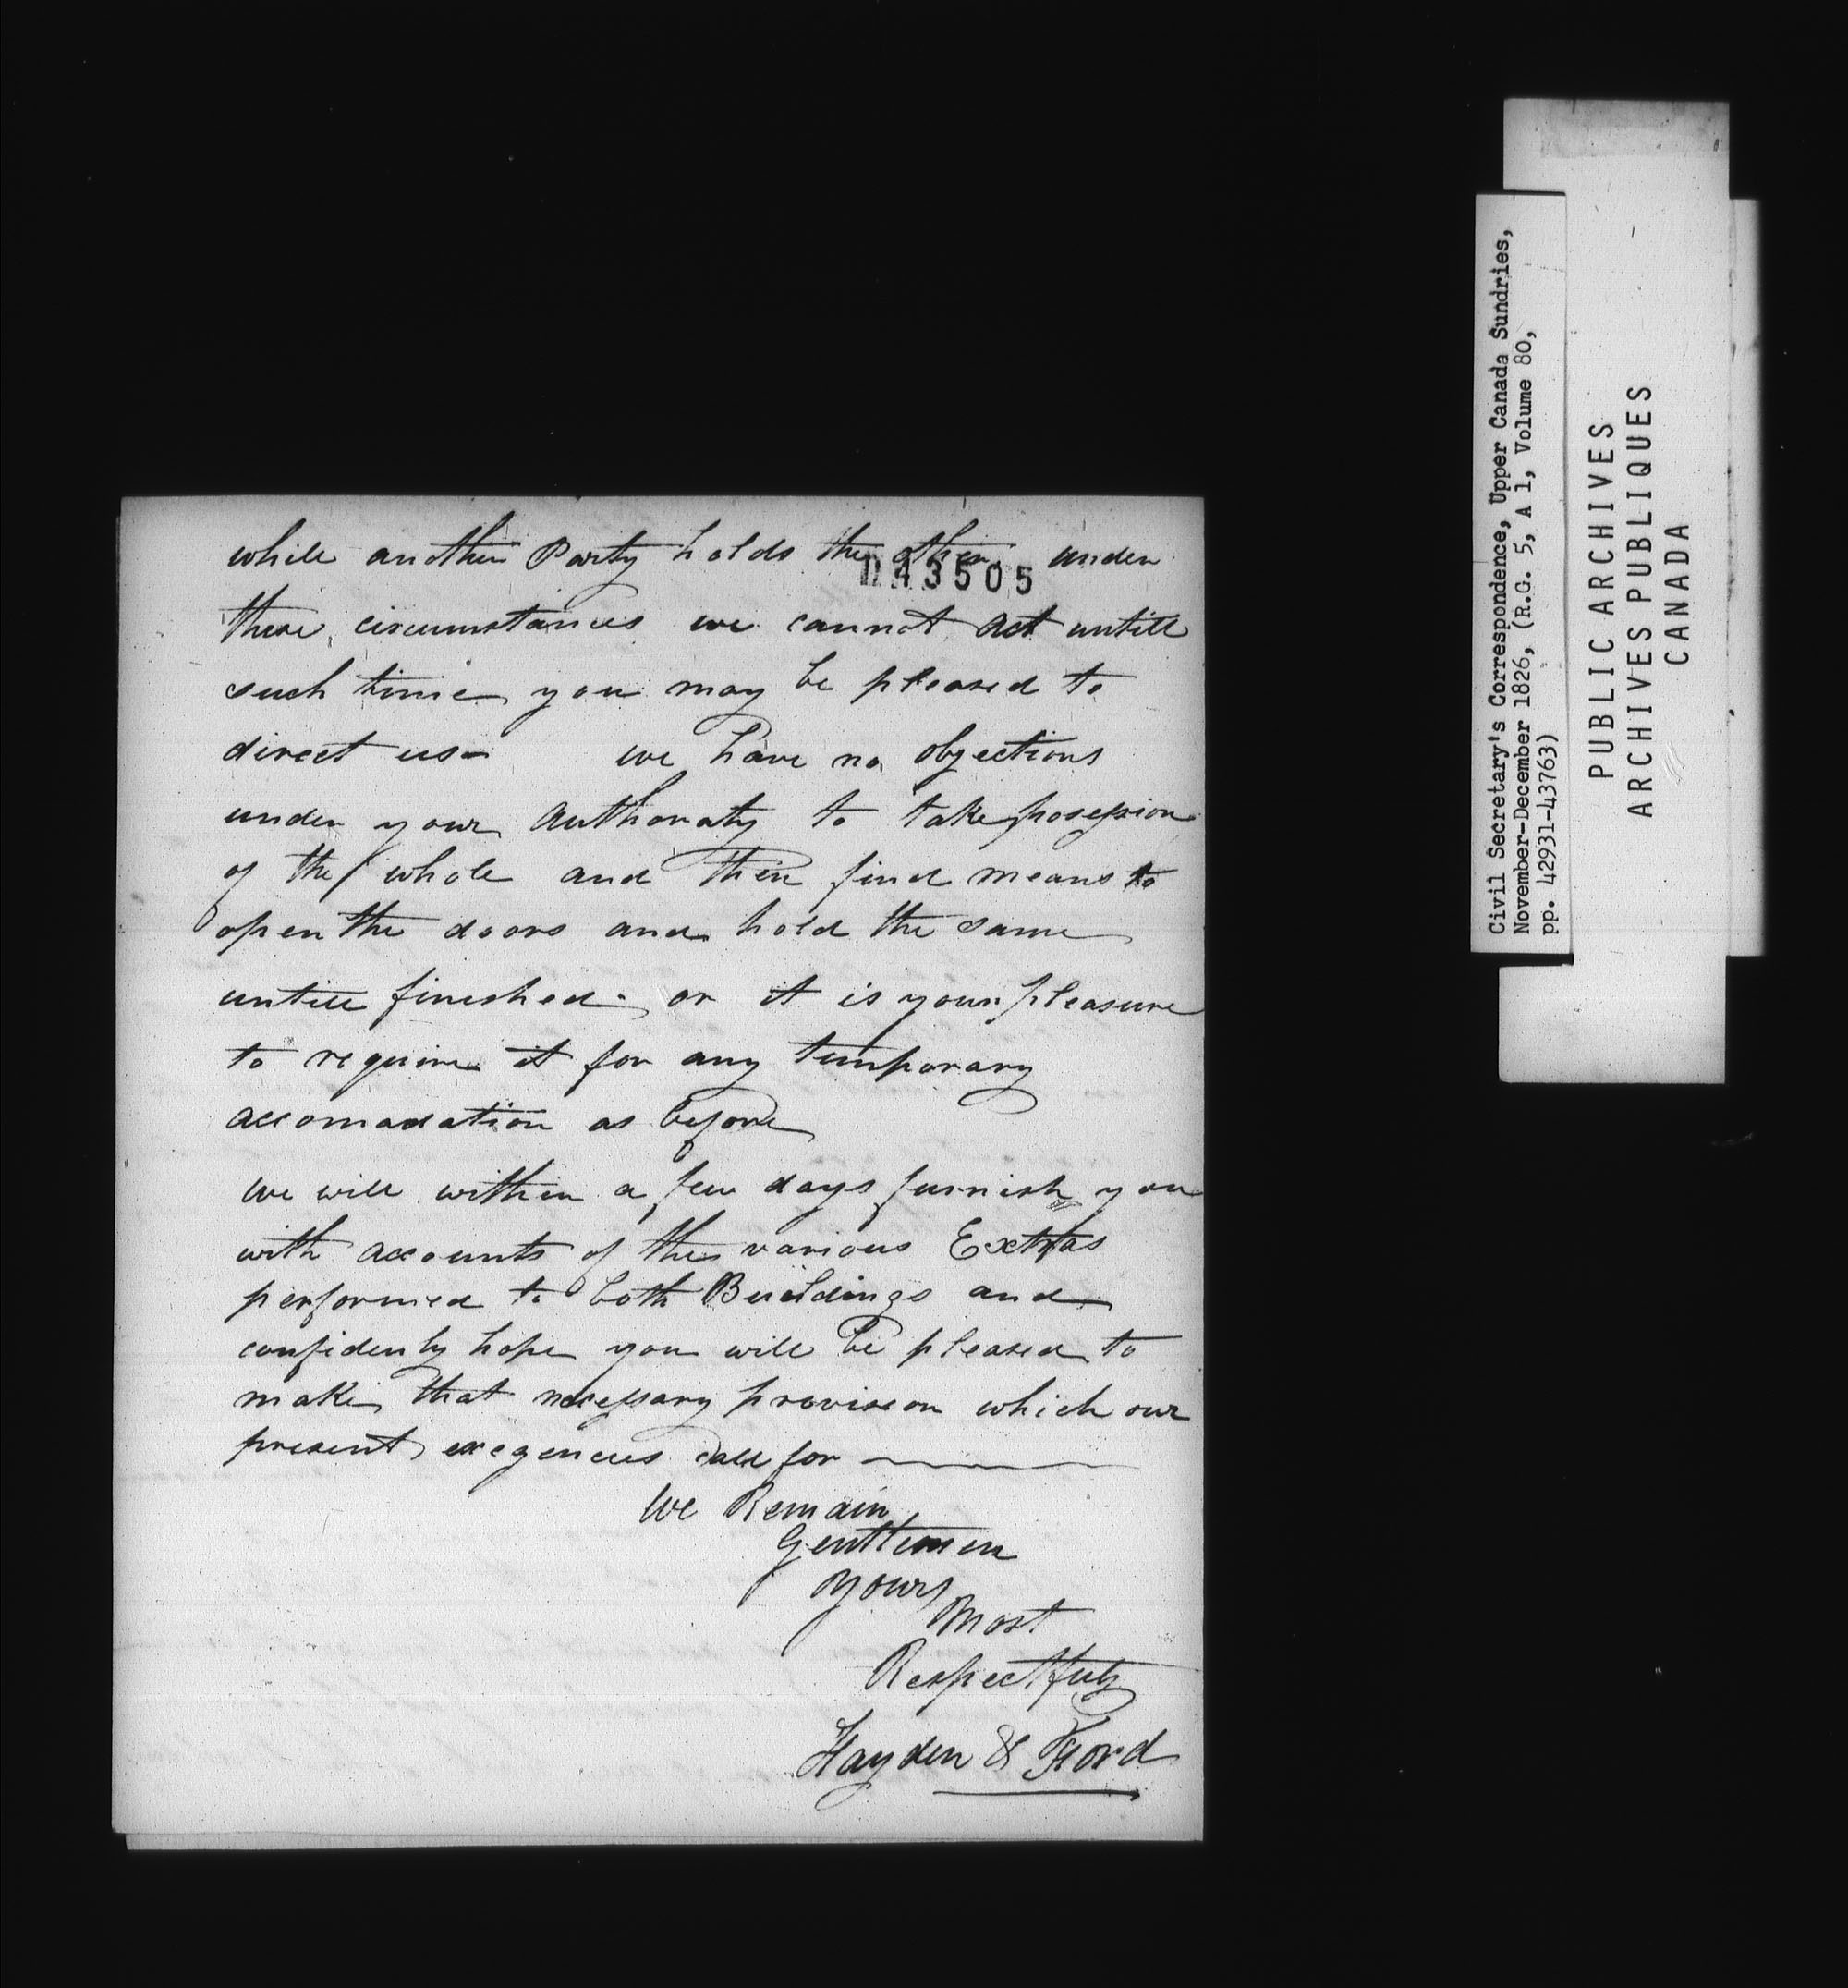 while another Party holds the other. under
043505
these circumstances we cannot act untill
such time you may be pleased to
direct us— we have no objections
under your authoraty to take posession
of the whole and then find means to
open the doors and hold the same
untill finished. or it is your pleasure
to require it for any temporary
accomadation as before
We will within a few days furnish you
with accounts of the various Extras
performed to both Buildings and
confidently hope you will be pleased to
make that necessary provision which our
present exegencies call for
We Remain
Gentlemen
Yours
Most
Respectfuly
Hayden & Ford
Civil Secretary's Correspondence, Upper Canada Sundries,
November-December 1826, (R.G. 5, A 1, Volume 80,
pp. 42931-43763)
PUBLIC ARCHIVES
ARCHIVES PUBLIQUES
CANADA